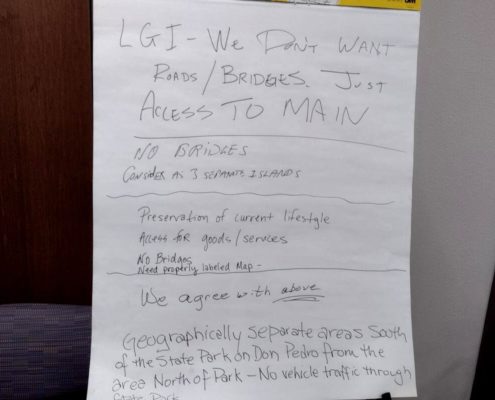 LGI - We Don't Want
Roads/Bridges. Just
Access To Main
No Bridges
Consider as 3 separate islands
Preservation of current lifestyle
Access for goods/services
No Bridges
Need properly labeled Map -
We agree with above
Geographically separate areas South
of the State Park on Don Pedro from the
area North of Park - No vehicle traffic through
State Park